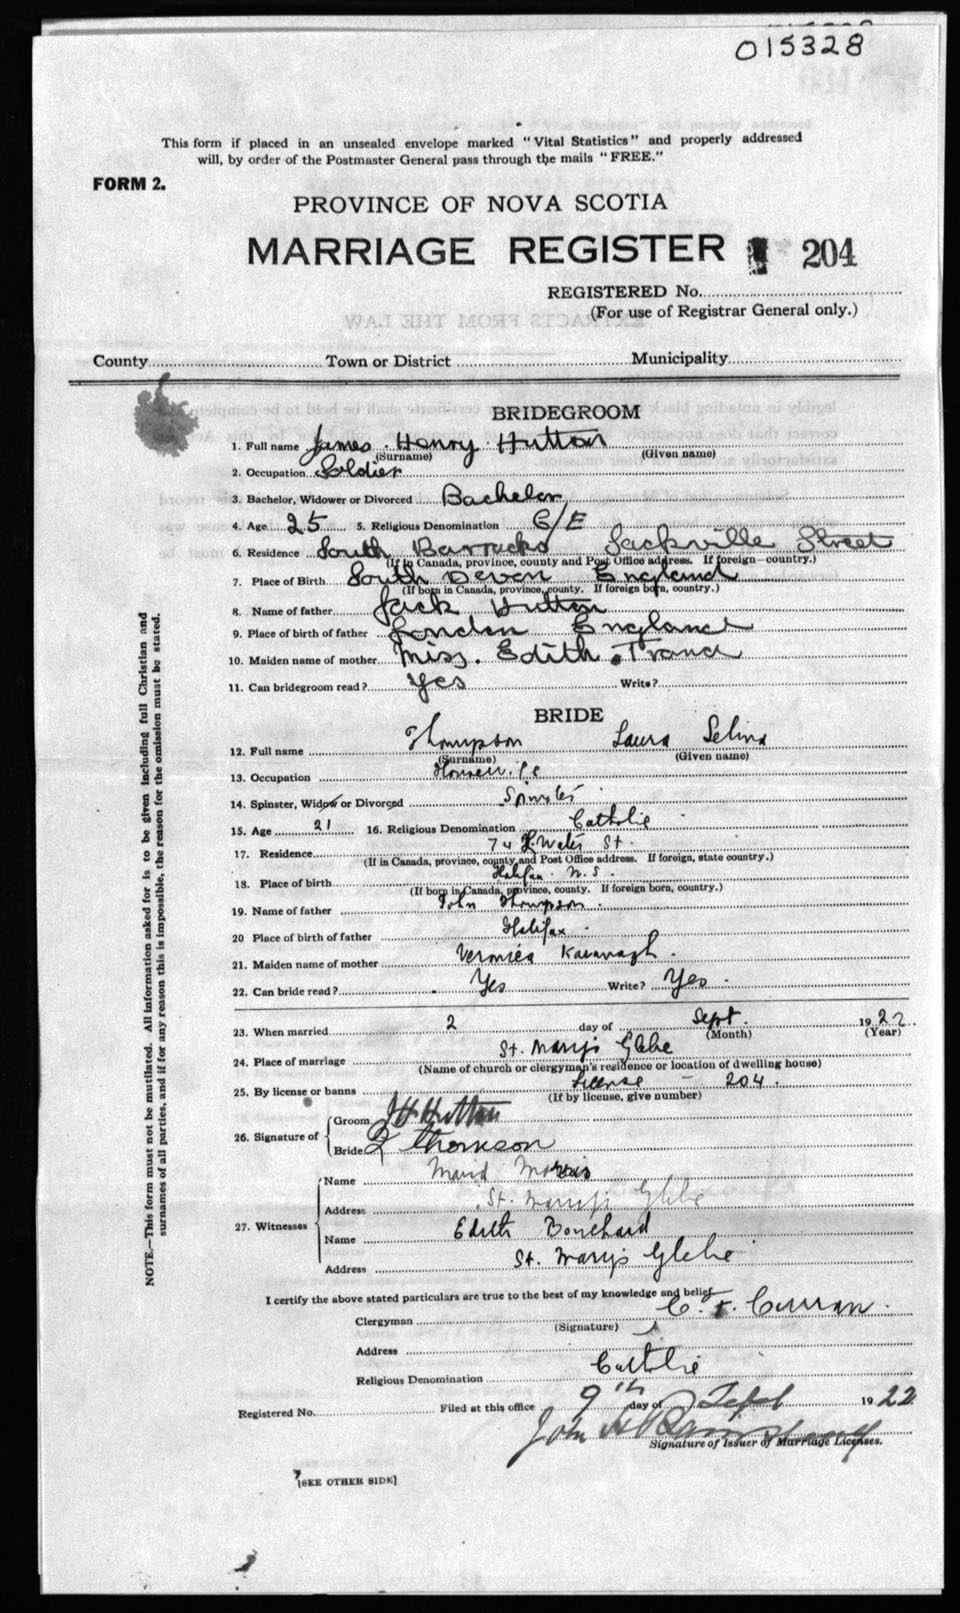 015328
This form if placed in an unsealed envelope marked "Vital Statistics" and properly addressed
will, by order of the Postmaster General pass through the mails "FREE."
FORM 2.
PROVINCE OF NOVA SCOTIA
MARRIAGE REGISTER 204
REGISTERED No.
(For use of Registrar General only.)
County Town or District Municipality
BRIDEGROOM
1. Full name James Henry Hutton
(Surname) (Given name)
2. Occupation Soldier
3. Bachelor, Widower or Divorced Bachelor
4. Age 25 5. Religious Denomination C/E
6. Residence South Barracks Sackville Street
(If in Canada, province, county and Post Office address. If foreign country.)
7. Place of Birth South Devon England
(If born in Canada, province, county. If foreign born, country.)
8. Name of father Jack Hutton
9. Place of birth of father London England
10. Maiden name of mother Miss. Edith
11. Can bridegroom read? Yes Write?
BRIDE
12. Full name Thompson Laura Selina
(Surname) (Given name)
13. Occupation
14. Spinster, Widow or Divorced Spinster
15. Age 21 16. Religious Denomination Catholic
17. Residence 74 Water St.
(If in Canada, province, county and Post Office address. If foreign, state country.)
18. Place of birth Halifax N.S.
(If born in Canada, province, county. If foreign born, country.)
19. Name of father John Thompson.
20 Place of birth of father Halifax
21. Maiden name of mother Veronica Kavanagh.
22. Can bride read? Yes Write? Yes.
23. When married 2 day of Sept. 1922
(Month) (Year)
24. Place of marriage St. Mary's Glebe
(Name of church or clergyman's residence or location of dwelling house)
25. By license or banns License - 204.
(If by license, give number)
26. Signature of Groom J H Hutton
Bride L Thomson
27. Witnesses Name Morris
Address St. Mary's Glebe
Name Edith Bouchard
Address St. Mary's Glebe
I certify the above stated particulars are true to the best of my knowledge and belief.
Clergyman C. F. Curran.
(Signature)
Address
Religious Denomination Catholic
Registered No. Filed at this office 9th day of Sept 1922
John
Signature of Issuer of Marriage Licenses.
[SEE OTHER SIDE]
NOTE.—This form must not be mutilated. All information asked for is to be given including full Christian and
surnames of all parties, and if for any reason this is impossible, the reason for the omission must be stated.